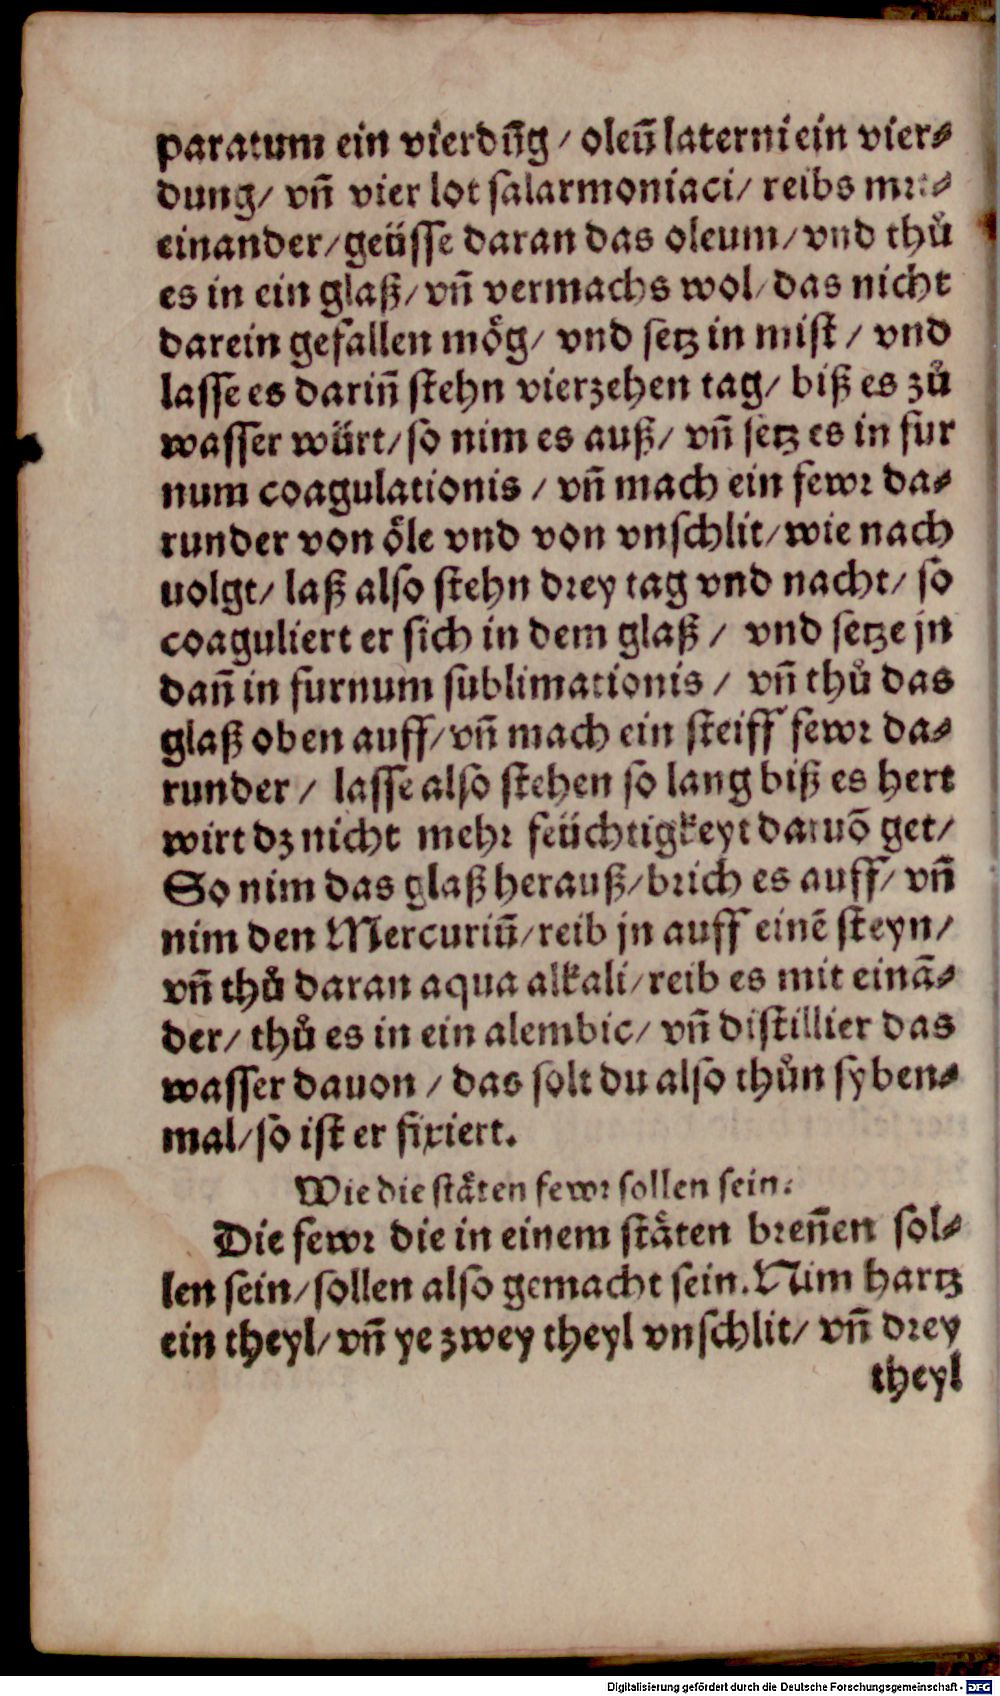 paratum ein vierdūg / oleū laterni ein vier⸗
dung/ vn̄ vier lot salarmoniaci/ reibs mit⸗
einander/geüsse daran das oleum/vnd thů
es in ein glaß/vn̄ vermachs wol/das nicht
darein gefallen mög/ vnd setz in mist / vnd
lasse es darin̄ stehn vierzehen tag/ biß es zů
wasser würt/so nim es auß/ vn̄ setz es in fur
num coagulationis / vn̄ mach ein fewr da⸗
runder von öle vnd von vnschlit/wie nach
uolgt/ laß also stehn drey tag vnd nacht/ so
coaguliert er sich in dem glaß / vnd setze jn
dan̄ in furnum sublimationis / vn̄ thů das
glaß oben auff/vn̄ mach ein steiff fewr da⸗
runder / lasse also stehen so lang biß es hert
wirt dz nicht mehr feüchtigkeyt daruō get/
So nim das glaß herauß/brich es auff/ vn̄
nim den Mercuriū/reib jn auff einē steyn/
vn̄ thů daran aqua alkali/reib es mit einā⸗
der/ thů es in ein alembic/ vn̄ distillier das
wasser dauon / das solt du also thůn syben⸗
mal/so ist er fixiert.
Wie die stäten fewr sollen sein.
Die fewr die in einem stäten bren̄en sol⸗
len sein/sollen also gemacht sein. Nim hartz
ein theyl/vn̄ ye zwey theyl vnschlit/ vn̄ drey
theyl
Digitalisierung gefördert durch die Deutsche Forschungsgemeinschaft - DFG